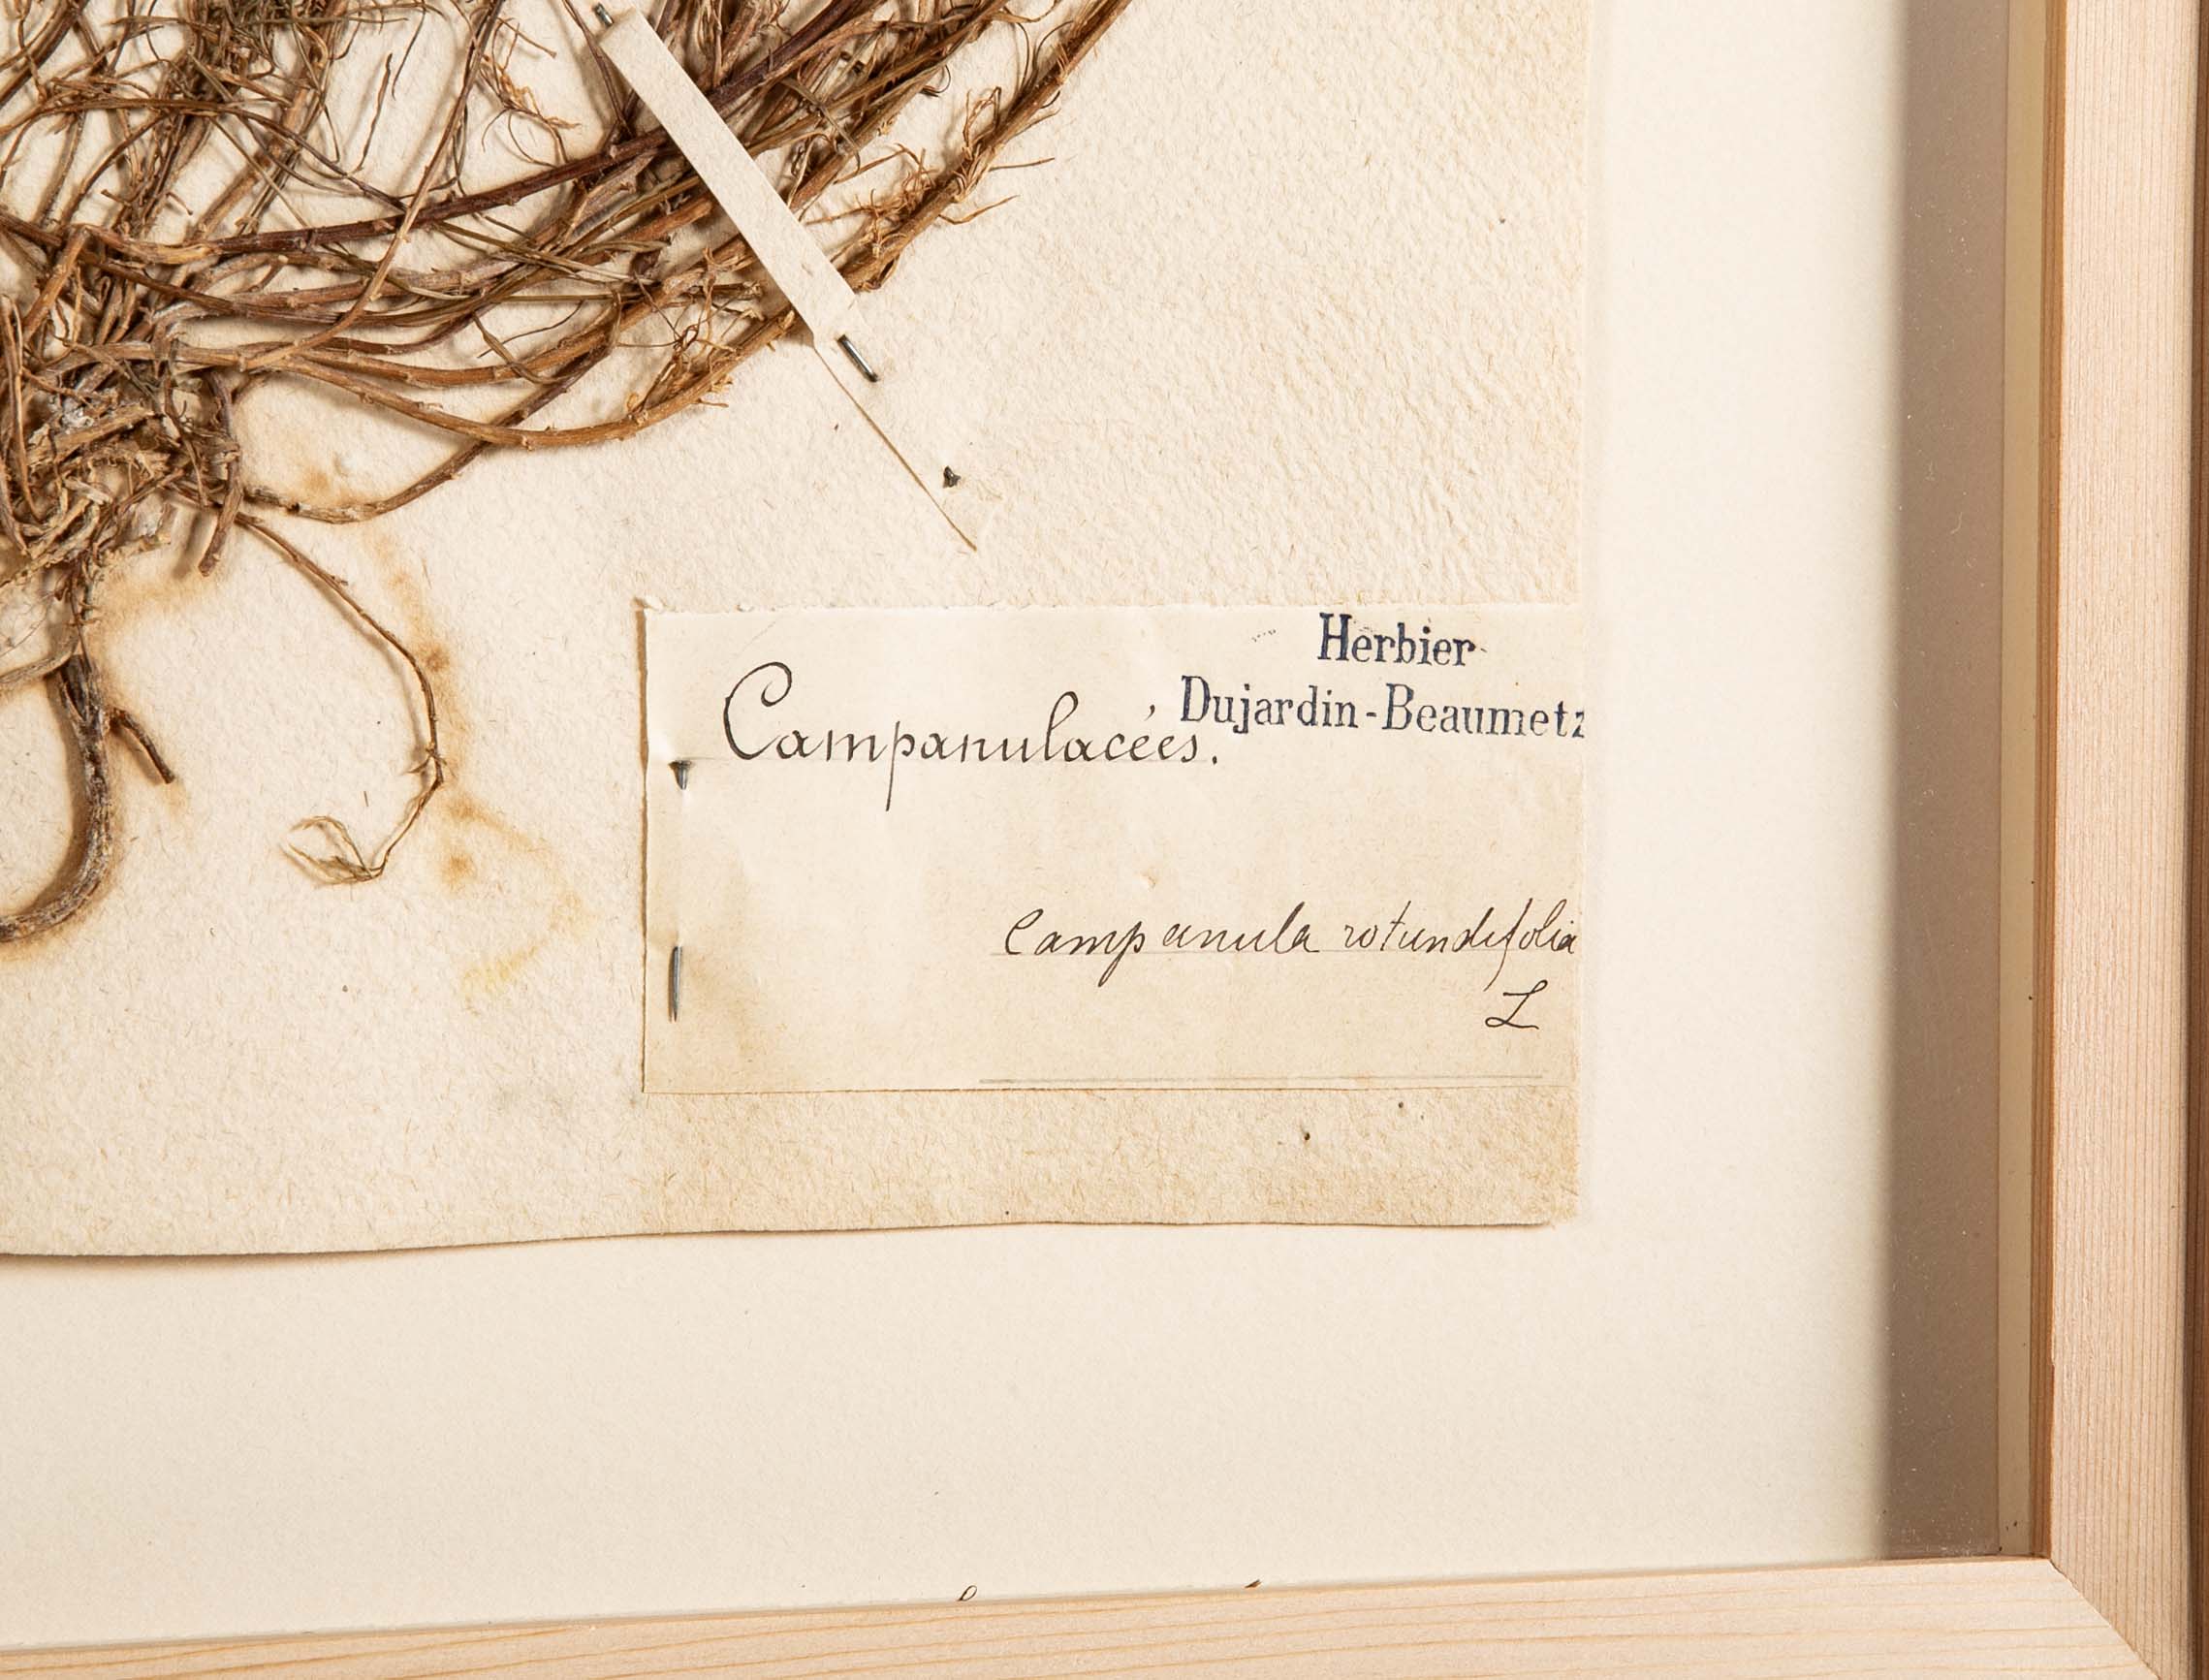 Herbier
Dujardin-Beaumetz
Campanulacées.
Campanula rotundifolia
L